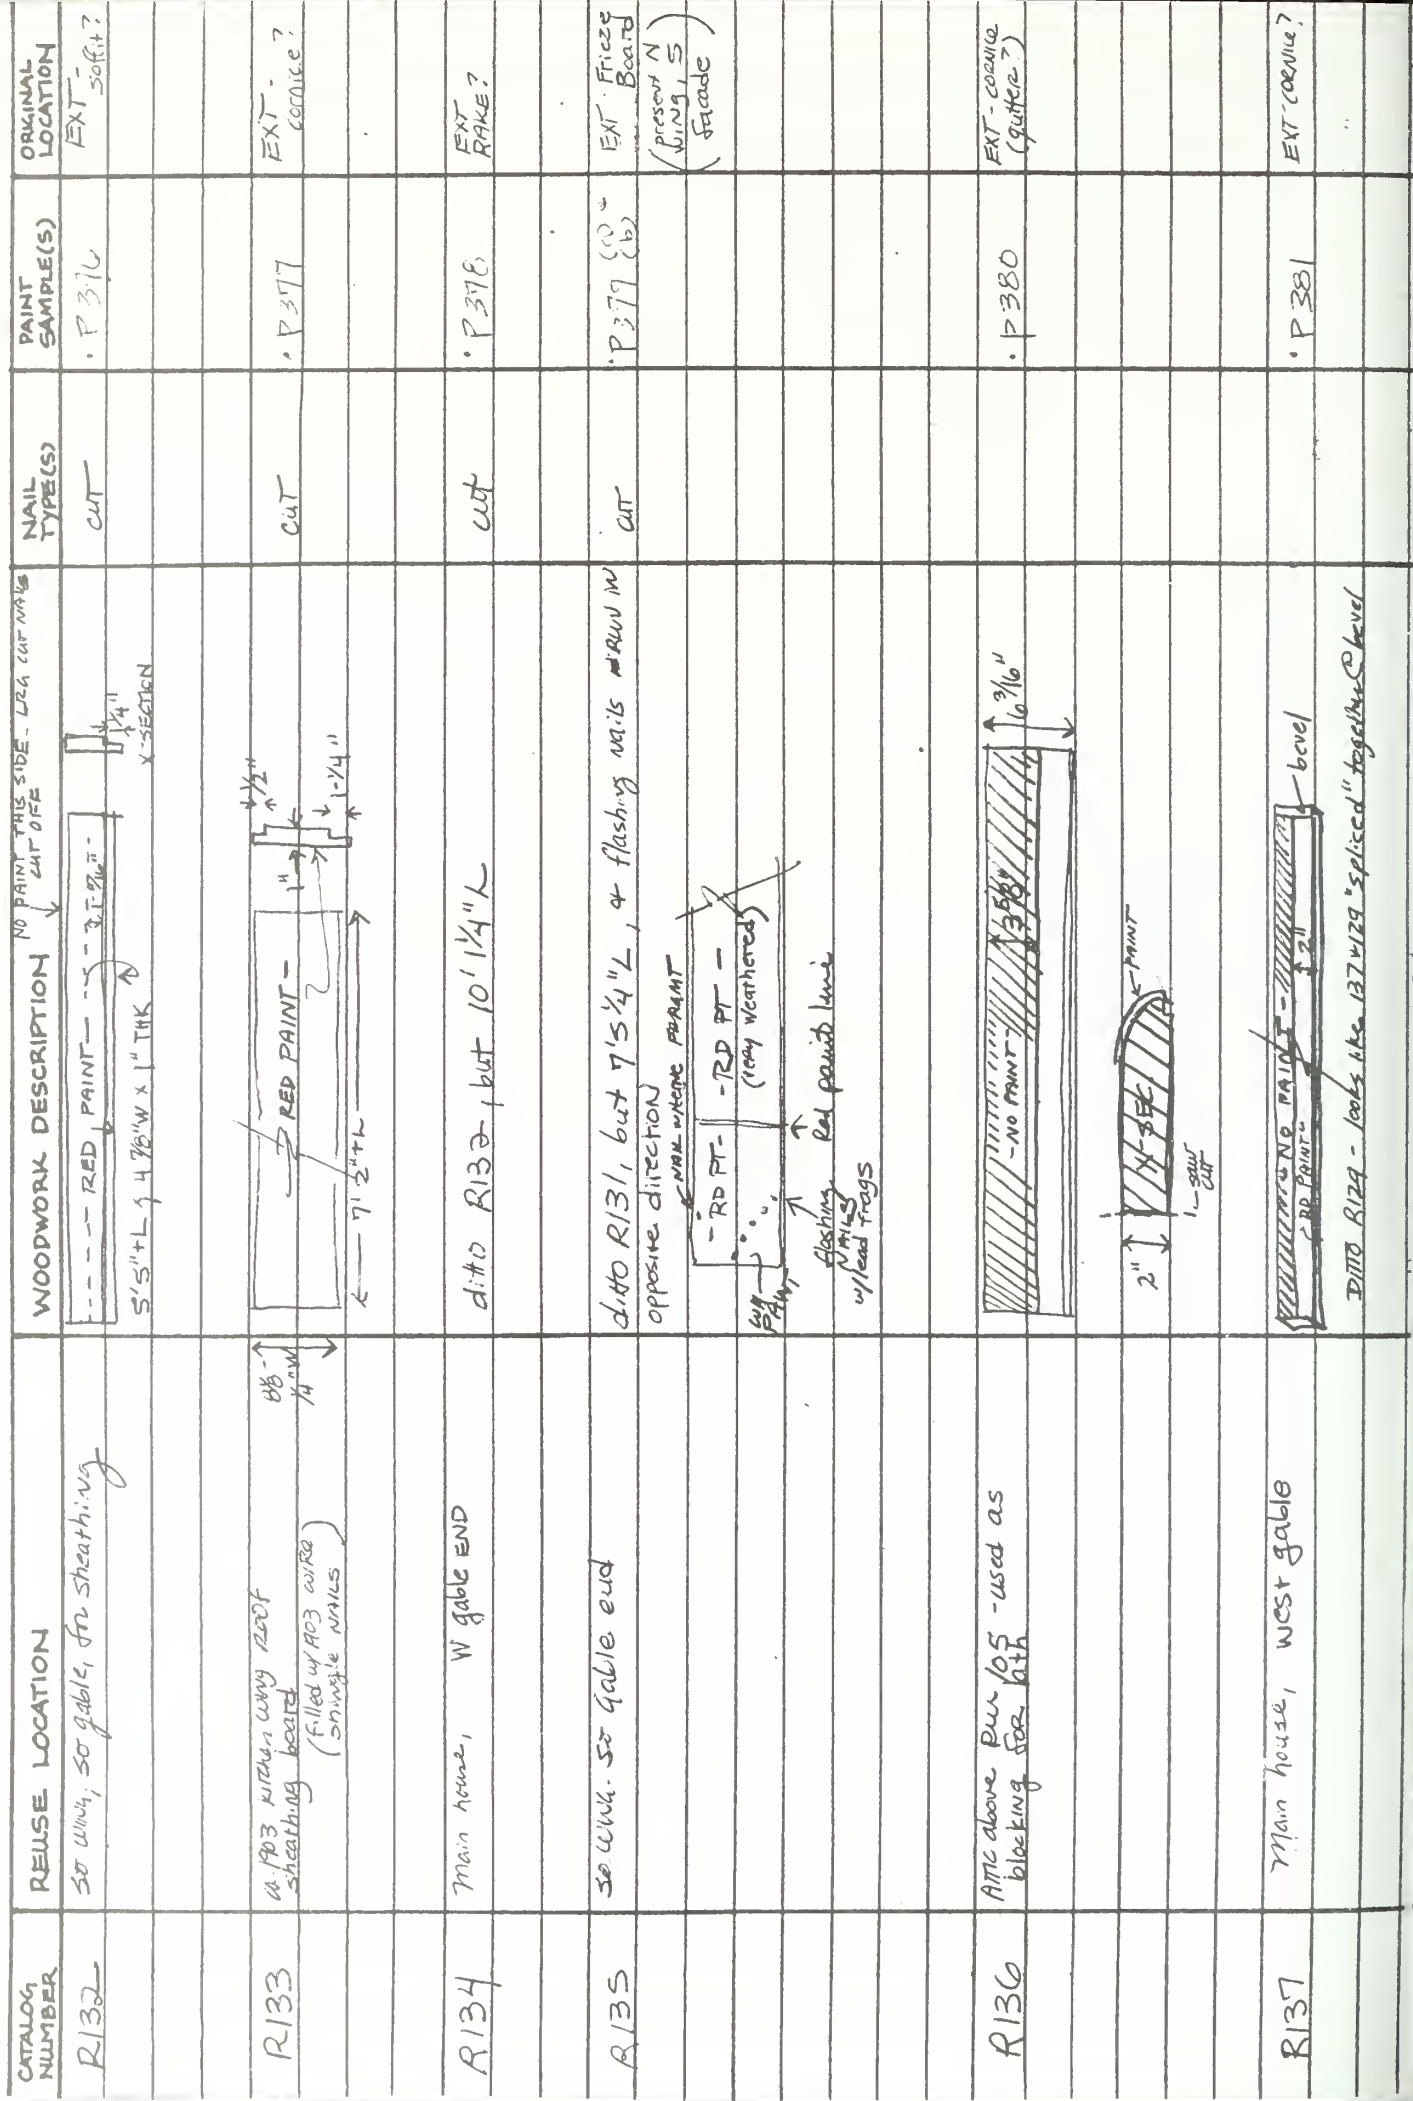 CATALOG NUMBER
REUSE LOCATION
WOODWORK DESCRIPTION
NAIL TYPE(S)
PAINT SAMPLE(S)
ORIGINAL LOCATION
NO PAINT THIS SIDE - LRG CUT NAILS
CUT OFF
R132
SO WING, SO gable, for sheathing
RED PAINT
1/4"
X-SECTION
5'5"+L x 4 7/8"W x 1" THK
CUT
EXT -
soffit?
R133
ca. 1903 KITCHEN WING ROOF
sheathing board
(filled w/1903 WIRE
shingle NAILS)
1/4"W
RED PAINT
1/2"
1"
1-1/4"
7' 2"+L
CUT
P377
EXT -
cornice?
R134
Main house, W gable END
ditto R132, but 10' 1 1/4"L
cut
P378
EXT
RAKE?
R135
SO WING. SO Gable end
ditto R131, but 7'5 1/4"L, & flashing nails RUN IN
opposite direction
RD PT - RD PT -
(very weathered)
flashing
NAILS
w/lead frags
Red paint line
CUT
(b)
EXT - Frieze
Board
(present N
WING, S
facade)
R136
Attic above RM 105 - used as
blocking for lath
NO PAINT
3 5/8"
6 3/16"
2"
X-SEC
PAINT
SAW
CUT
P380
EXT - CORNICE
(gutter?)
R137
Main house, west gable
NO PAINT
RD PAINT
2"
bevel
DITTO R129 - looks like 137 & 129 "spliced" together @ bevel
P381
EXT CORNICE?